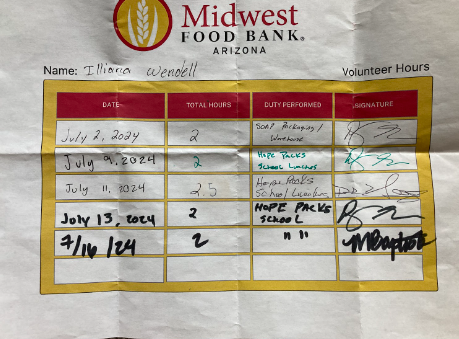 Midwest
FOOD BANK®
ARIZONA
Name: Illiana Wendell Volunteer Hours
DATE TOTAL HOURS DUTY PERFORMED SIGNATURE
July 2, 2024 2 Soap Packaging /
Warehouse
July 9, 2024 2 Hope Packs
School Lunches
July 11, 2024 2.5 Hope Packs
School Lunches
July 13, 2024 2 HOPE PACKS
SCHOOL
7/16/24 2 " "